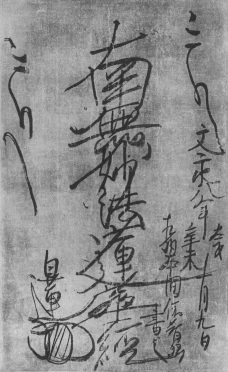 文永八年太才辛未十月九日
相州本間依智郷
書之
南無妙法蓮華經
日蓮